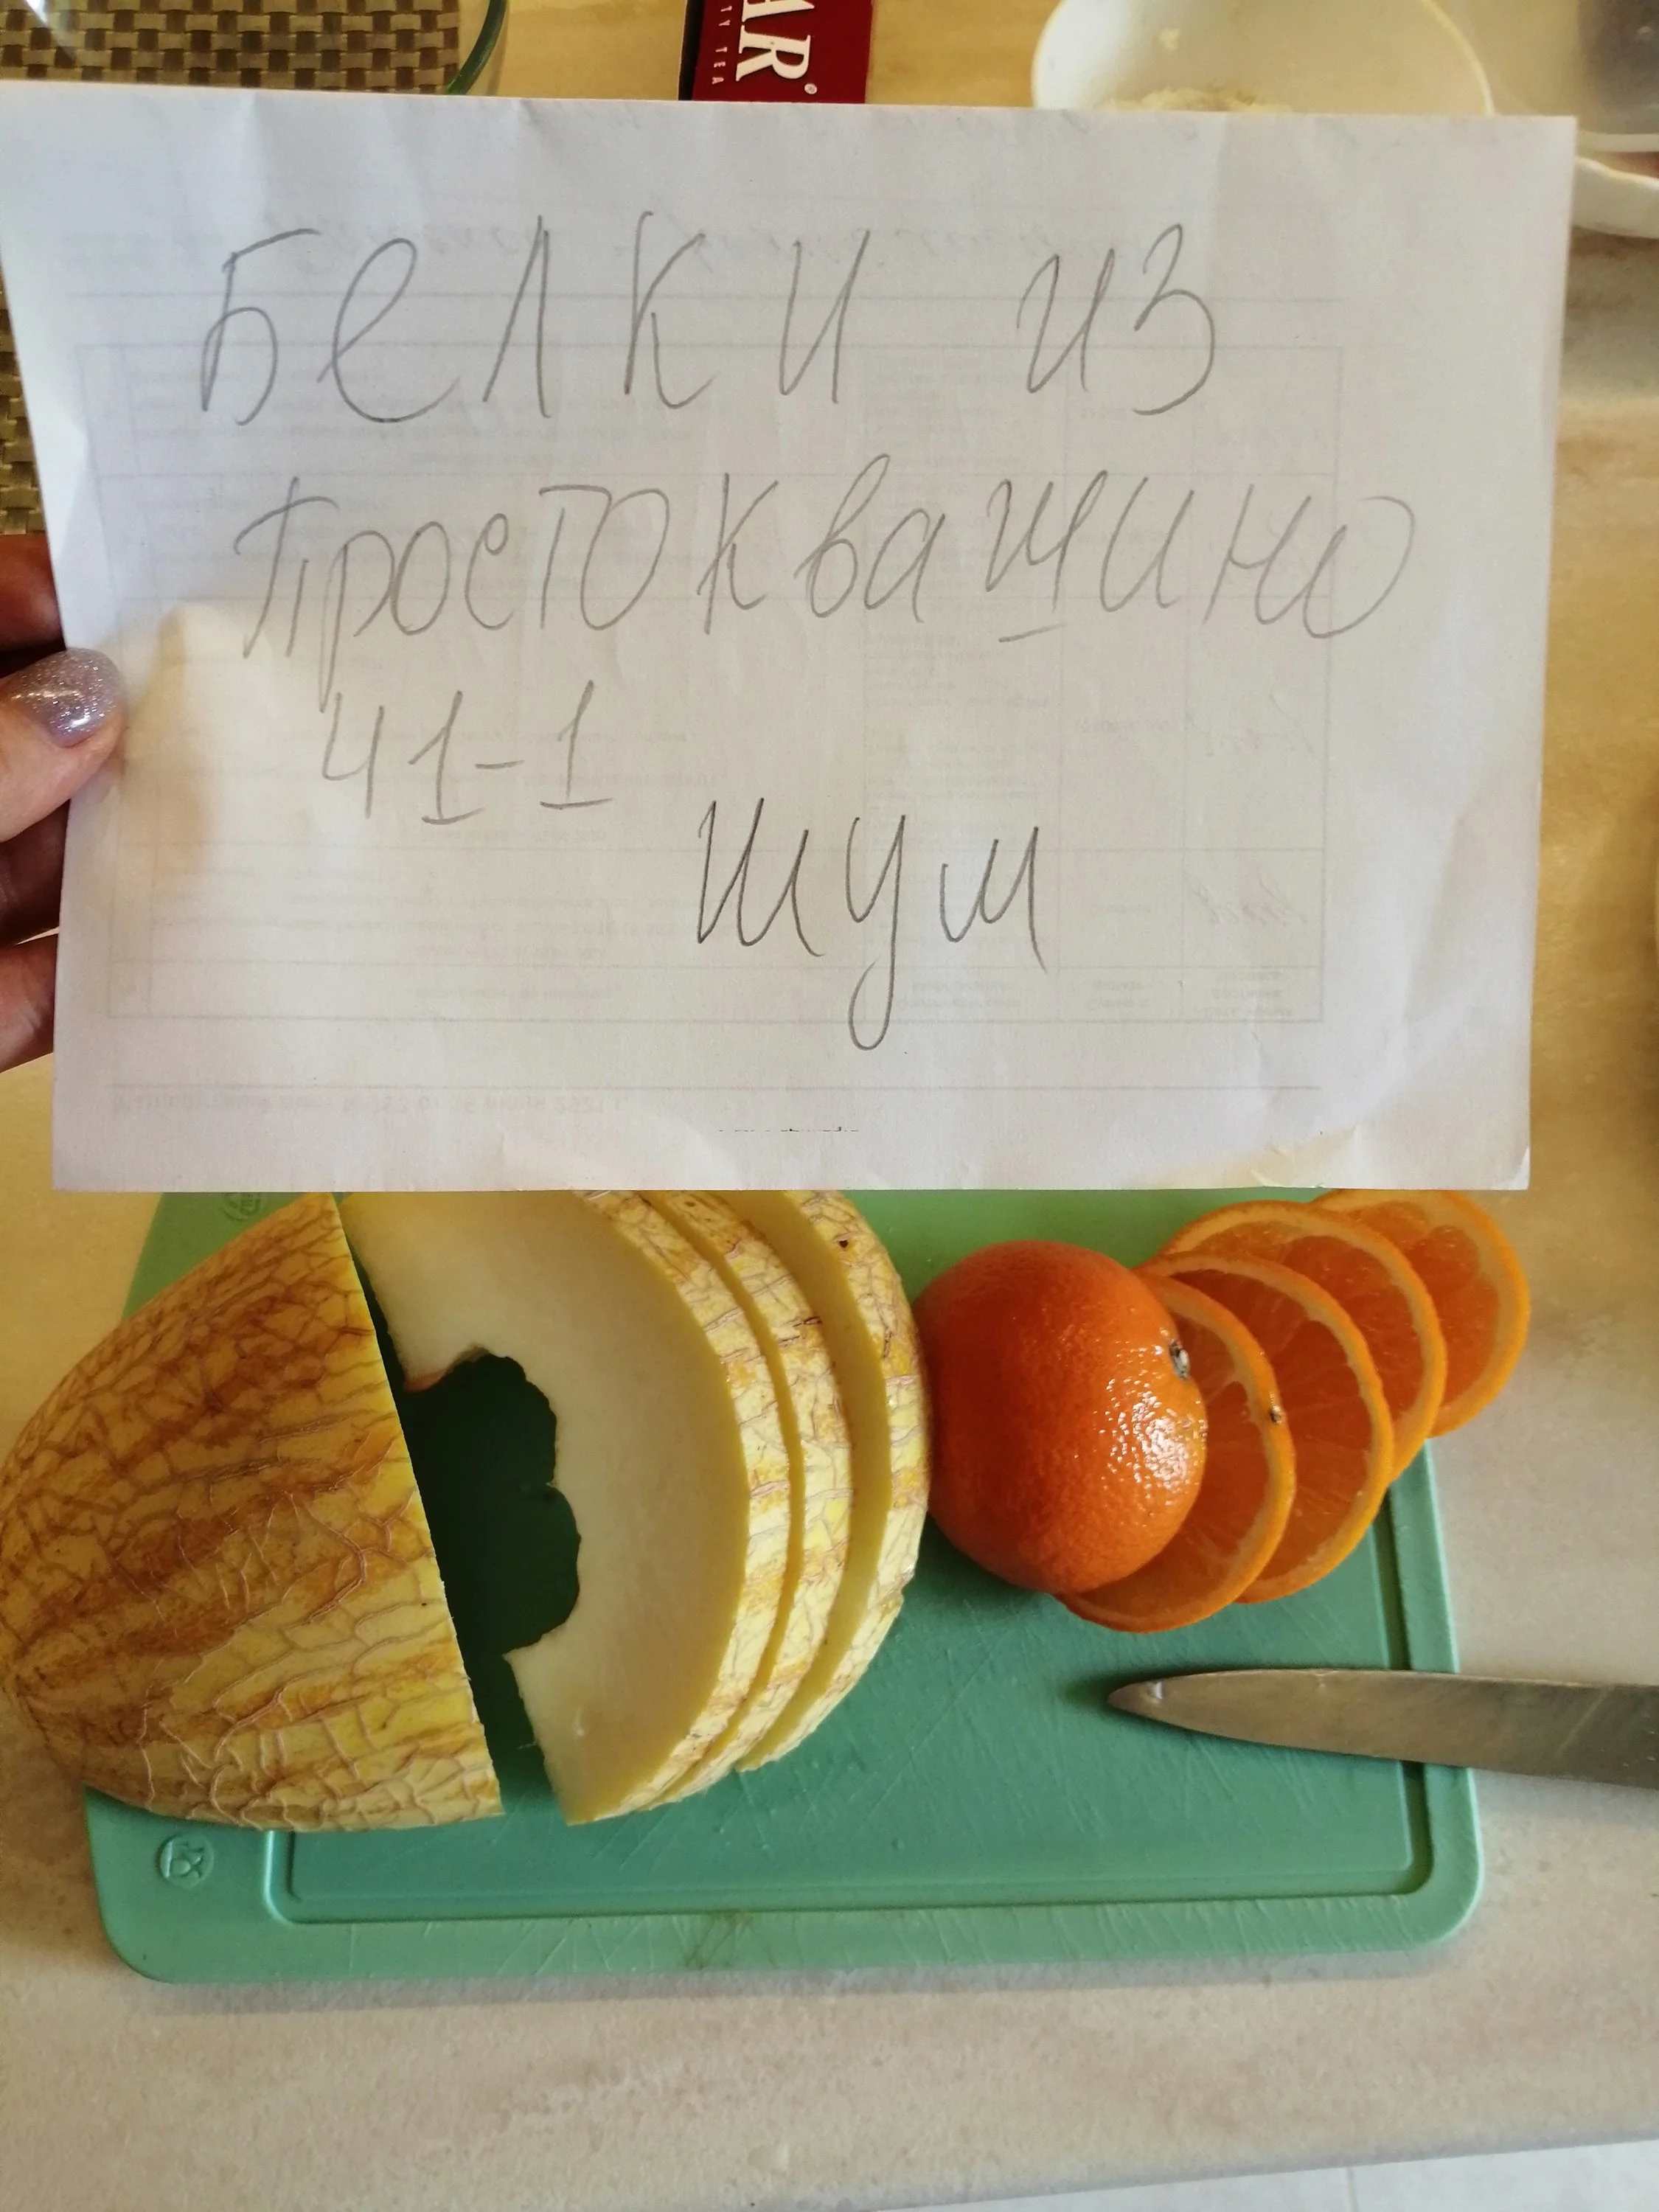 AR®
TY TEA
Белки из
Простоквашино
41-1
шум